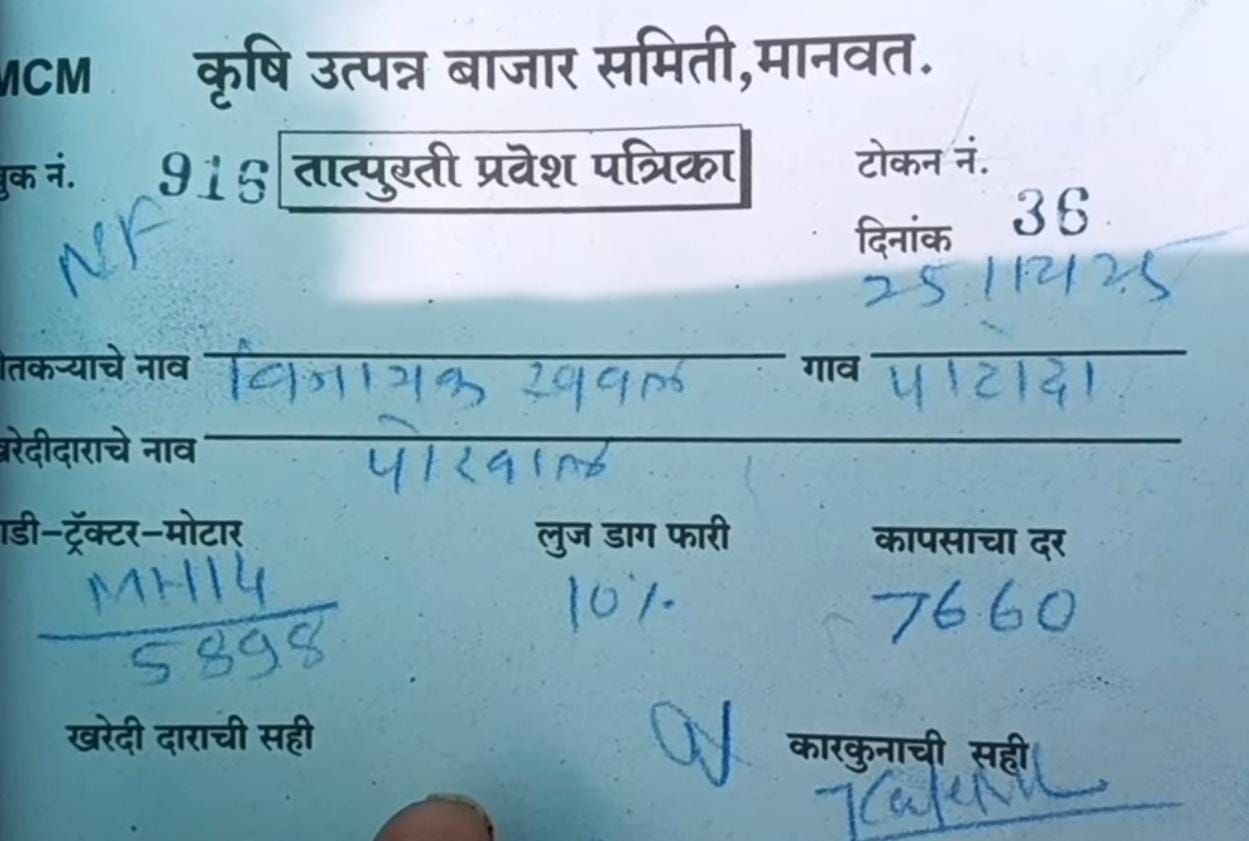 MCM कृषि उत्पन्न बाजार समिती,मानवत.
बुक नं. 916 तात्पुरती प्रवेश पत्रिका टोकन नं. 36
NF
दिनांक 25/12/25
शेतकऱ्याचे नाव विनायक गाव पाटोदा
खरेदीदाराचे नाव पोरवाल
गाडी-ट्रॅक्टर-मोटार लुज डाग फारी कापसाचा दर
MH14 10% 7660
5898
खरेदी दाराची सही कारकुनाची सही